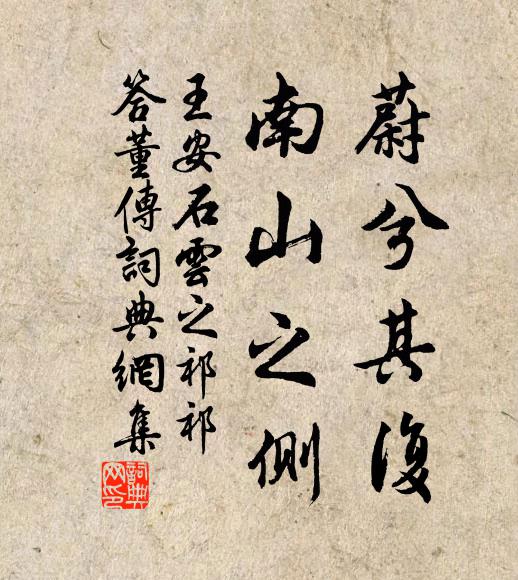 蔚兮其復
南山之側
王安石雲之祁祁
答董傳詞典網集
詞典网印